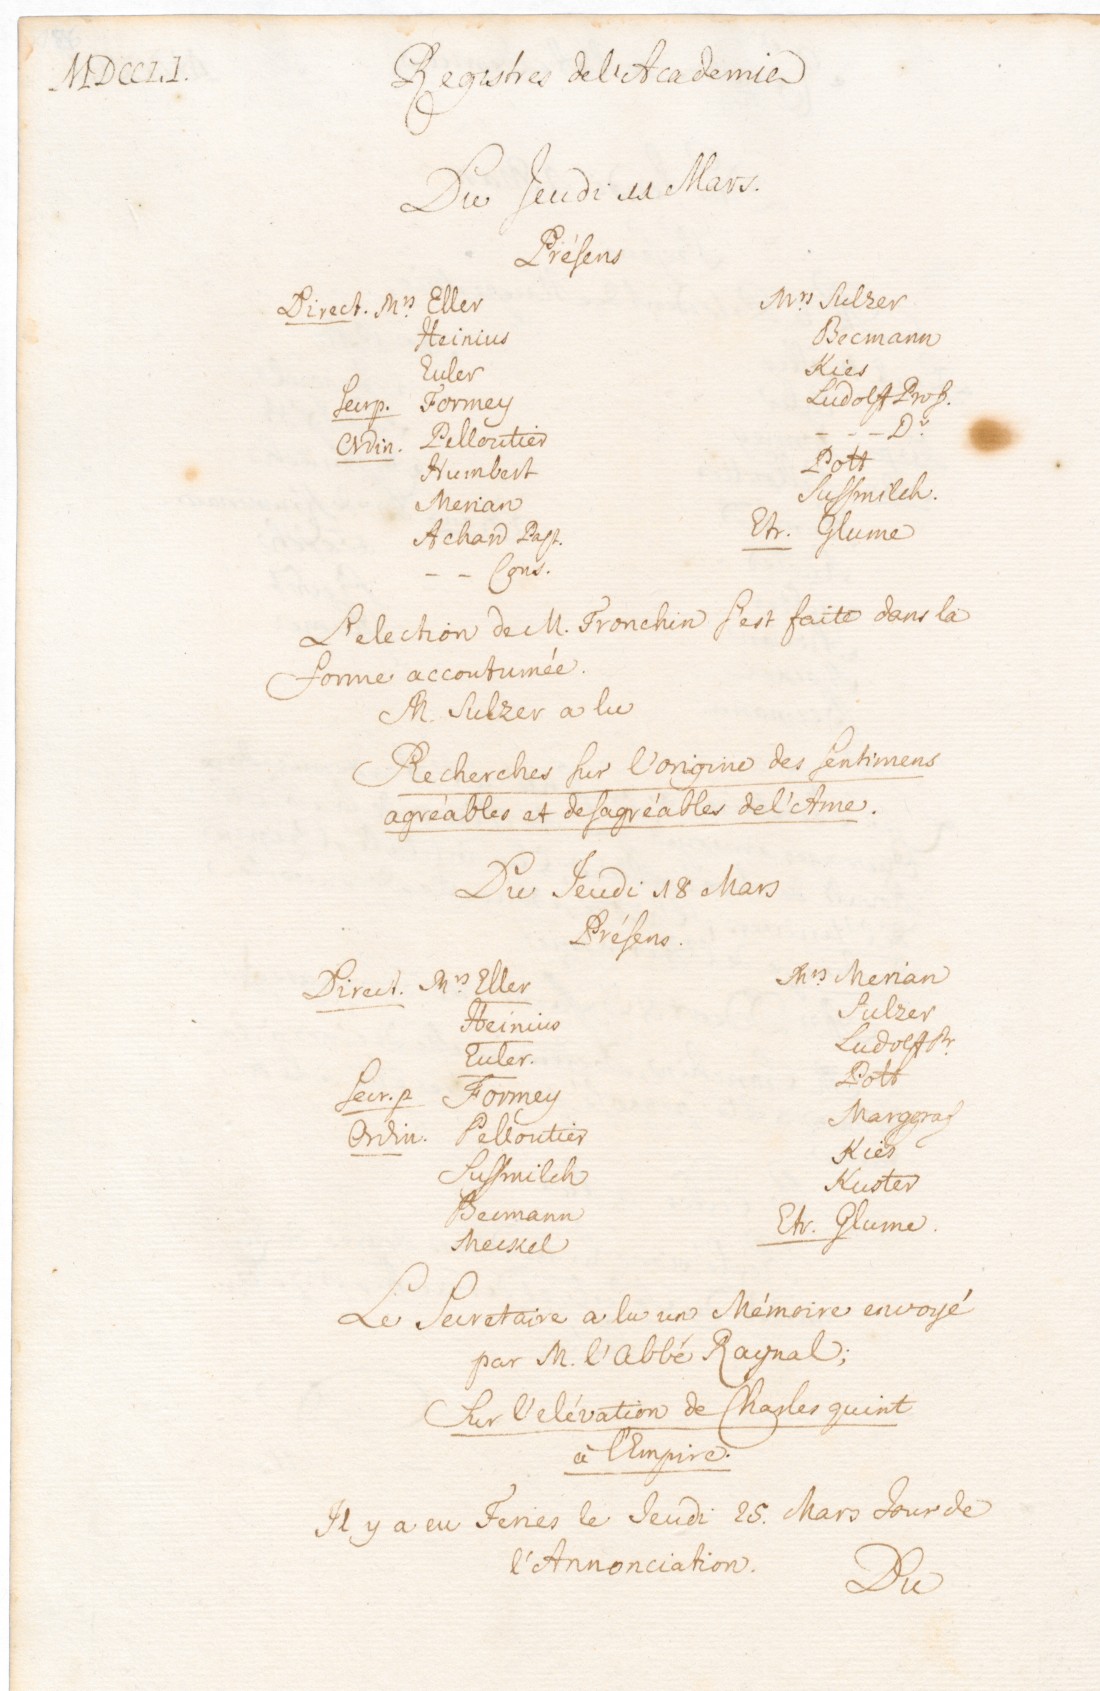 MDCCLI.
Registres de l'Academie
Du Jeudi 11 Mars.
Présens
Direct. Mrs Eller
Heinius
Euler
Secr p. Formey
Ordin. Pelloutier
Humbert
Merian
Achard Past.
- - Cons.
Mrs Sulzer
Becmann
Kies
Ludolff Prof.
- - - Dr
Pott
Sussmilch.
Etr. Glume
L'election de M. Tronchin s'est faite dans la
forme accoutumée.
M. Sulzer a lu
Recherches sur l'origine des sentimens
agréables et desagréables de l'Ame.
Du Jeudi 18 Mars
Présens.
Direct. Mrs Eller
Heinius
Euler.
Secr. p Formey
Ordin. Pelloutier
Sussmilch
Becmann
Meckel
Mrs Merian
Sulzer
Ludolff Pr.
Pott
Marggraf
Kies
Kuster
Etr. Glume.
Le Secretaire a lu un Mémoire envoyé
par M. l'Abbé Raynal;
Sur l'elévation de Charles quint
à l'Empire.
Il y a eu Feries le Jeudi 25. Mars Jour de
l'Annonciation.
Du